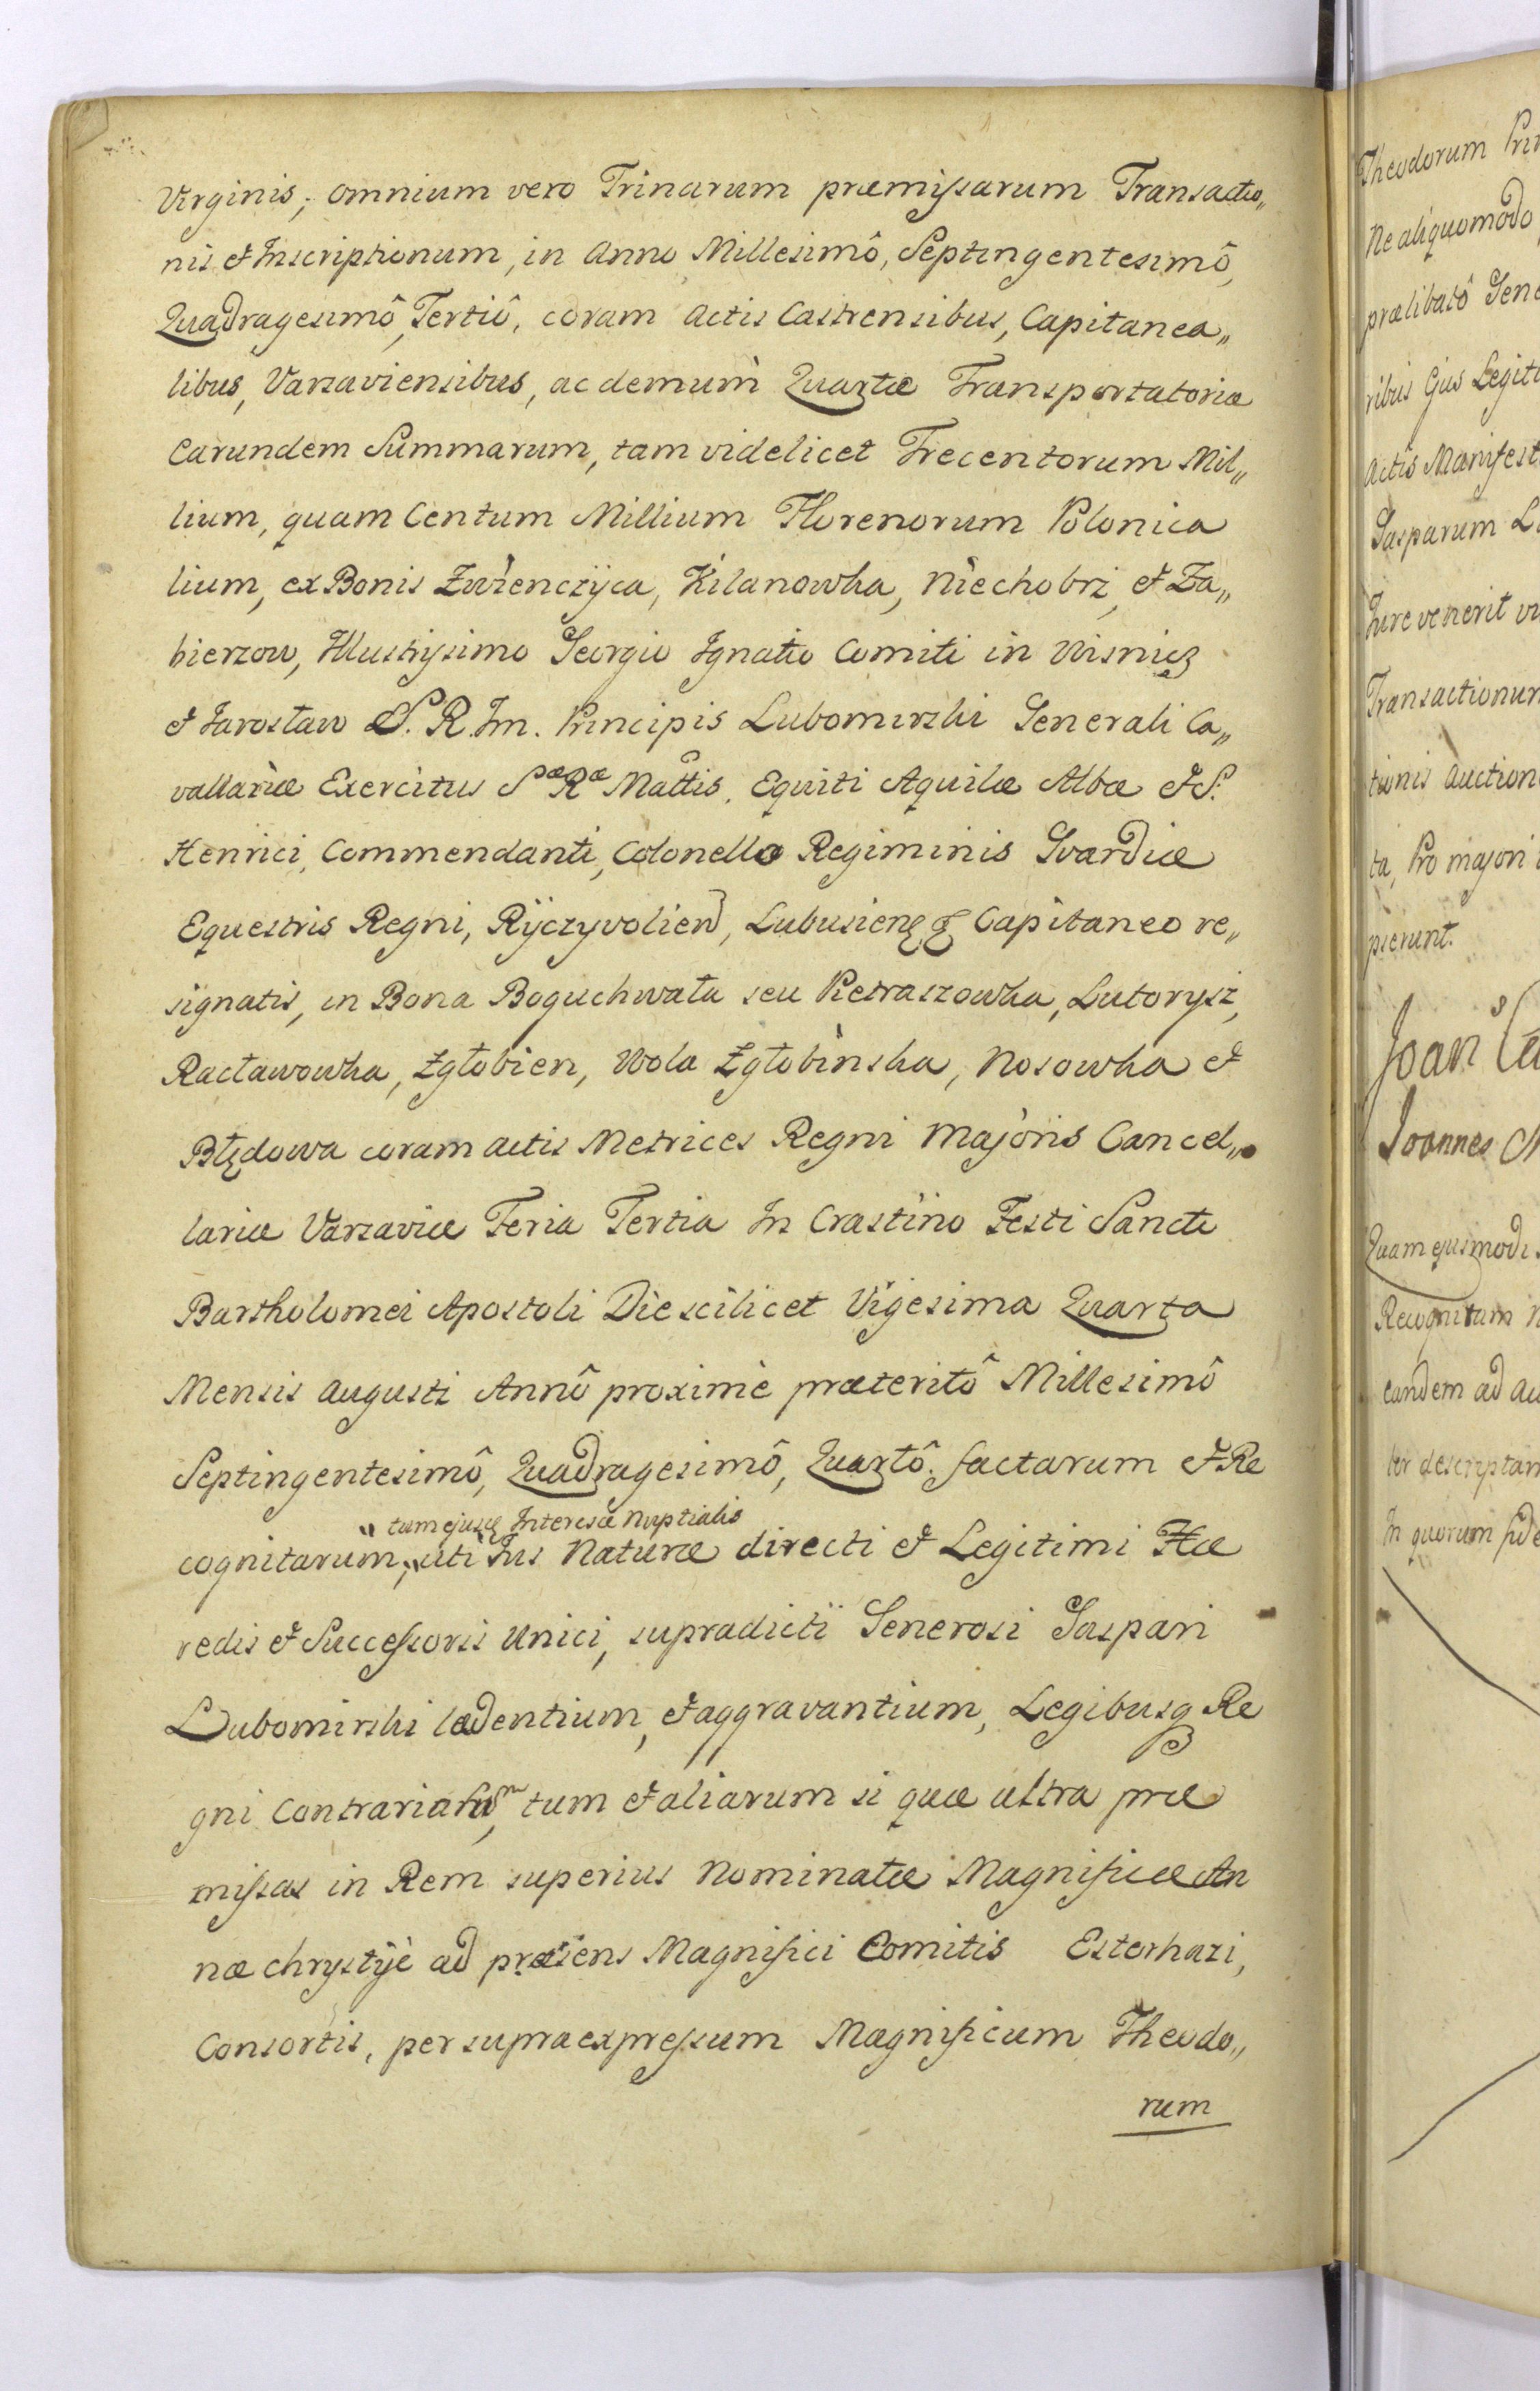 Virginis; omnium vero Trinarum præmissarum Transactio„
nis et Inscriptionum, in Anno Millesimô, Septingentesimô,
Quadragesimô, Tertiô, coram Actis Castrensibus, Capitanea„
libus, Varsaviensibus, ac demum Quartæ Transportatoriæ
earundem Summarum, tam videlicet Trecentorum Mil„
lium, quam Centum Millium Florenorum Polonica
lium, ex Bonis Zwienczyca, Kilanowka, Niechobrz, et Za„
bierzow, Illustrissimo Georgio Ignatio Comiti in Wisnicz
et Jarosław S. R. Im. Principis Lubomirski Generali Ca„
vallariæ Exercitus Sæ Ræ Mattis, Equiti Aquilæ Albæ et S.
Henrici, Commendanti, Colonello Regiminis Gvardiæ
Equestris Regni, Ryczyvolien, Lubusienq q Capitaneo re„
signatis, in Bona Boguchwała seu Pietraszowka, Lutorysz,
Racławowka, Zgłobien, Wola Zgłobinska, Nosowka et
Błędowa coram actis Metrices Regni Majoris Cancel„
lariæ Varsaviæ Feria Tertia In Crastino Festi Sancti
Bartholomei Apostoli Die scilicet Vigesima Quarta
Mensis Augusti Annô proximè præteritô Millesimô
Septingentesimô, Quadragesimô, Quartô. factarum et Re
„ tum ejusq Interesæ Nuptialis
cognitarum, „ uti Jus Naturæ directi et Legitimi Hæ
redis et Successoris Unici, supradicti Generosi Gaspari
Lubomirski lædentium, et aggravantium, Legibusq Re
gni Contrariarum, tum et aliarum si quæ ultra præ
missas in Rem superius Nominatæ Magnificæ An
næ Chrystyè ad præsens Magnifici Comitis Esterhazi,
Consortis, per supraexpressum Magnificum Theodo„
rum
Theodorum
Ne aliquomodo
prælibatô
ribus Ejus
Actis Manifest
Gasparum
Jure venerit
Transactionum
tionis auction
ta, Pro majori
pierunt.
Joan
Joannes
Quam ejusmodi
Recognitam
eandem ad
ter descriptam
In quorum fide